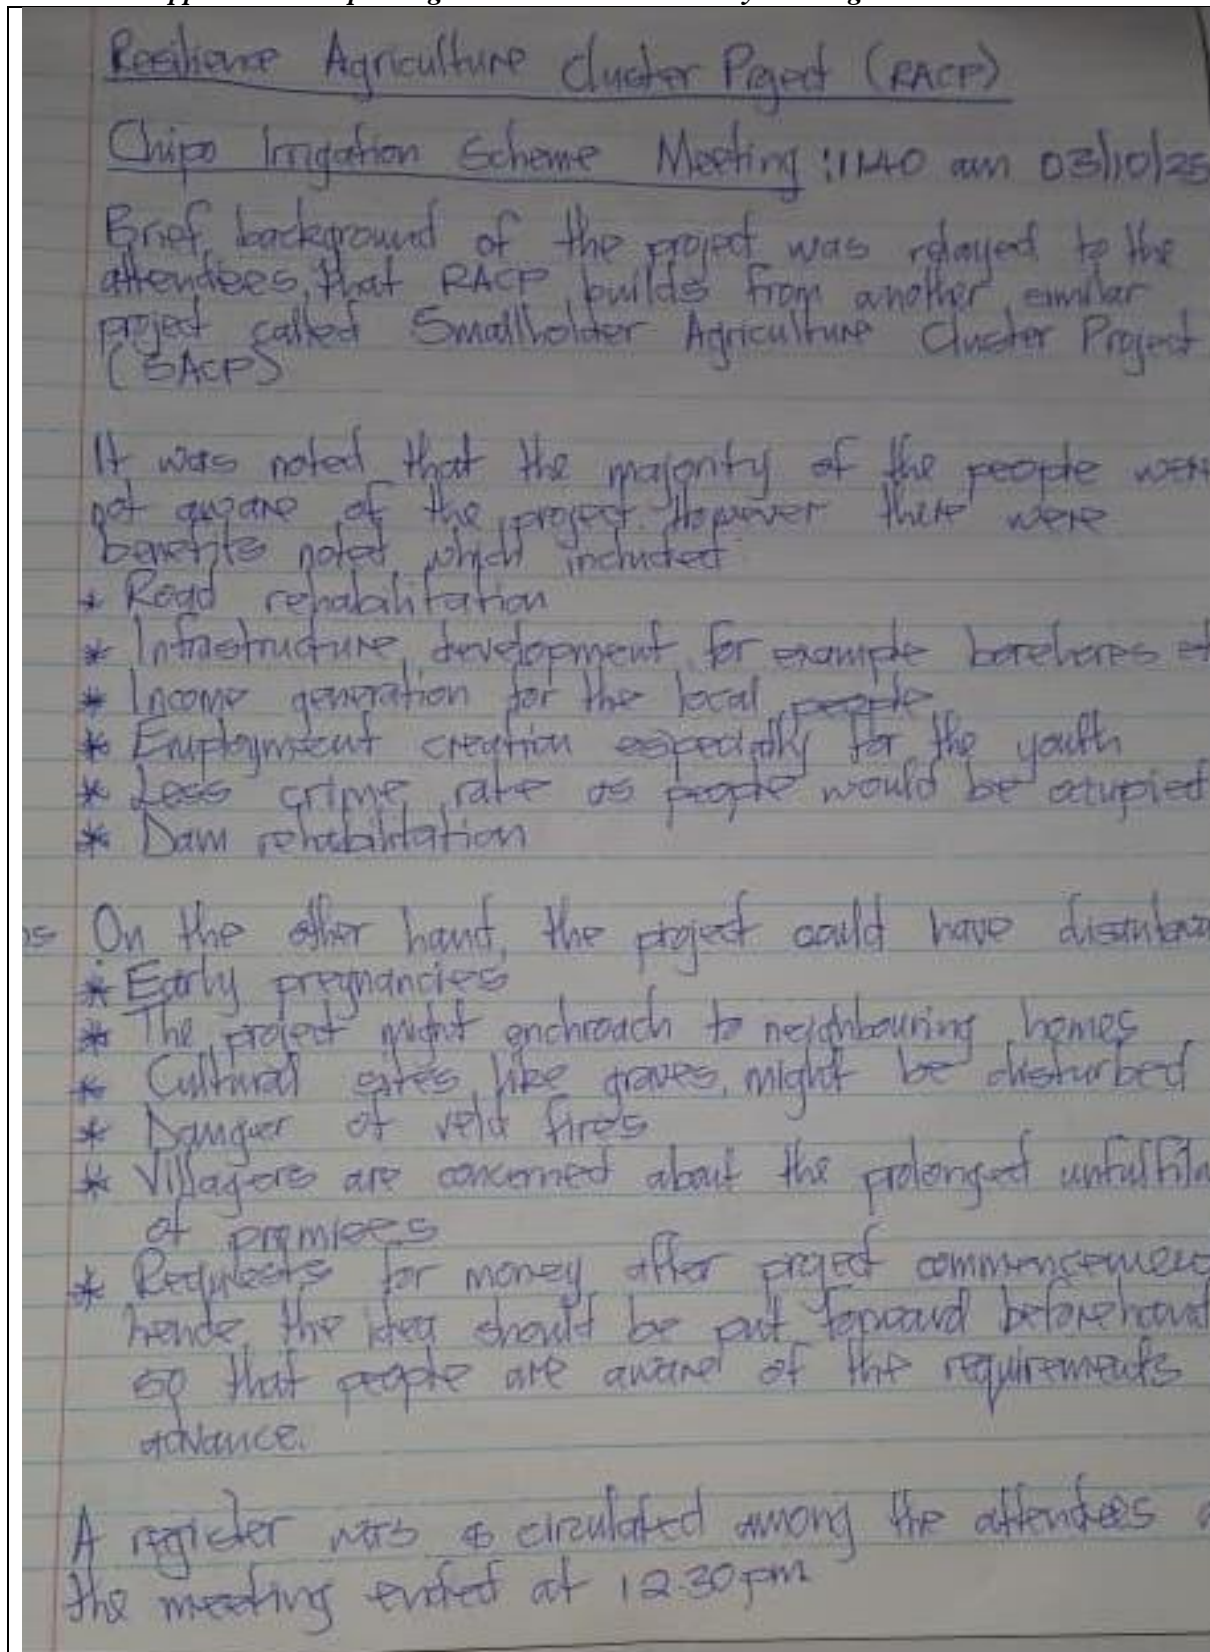 Resilience Agriculture Cluster Project (RACP)
Chipo Irrigation Scheme Meeting : 1140 am 03/10/25
Brief background of the project was relayed to the
attendees, that RACP builds from another similar
project called Smallholder Agriculture Cluster Project
(SACP)
It was noted that the majority of the people were
not aware of the project. However there were
benefits noted which included
* Road rehabilitation
* Infrastructure development for example
* Income generation for the local people
* Employment creation especially for the youth
* Less crime rate as people would be occupied
* Dam rehabilitation
On the other hand, the project could have
* Early pregnancies
* The project might enchroach to neighbouring homes
* Cultural sites like graves, might be disturbed
* Danger of veld fires
* Villagers are concerned about the prolonged
of promises
* Requests for money after project
hence the idea should be put forward beforehand
so that people are aware of the requirements
advance.
A register was circulated among the attendees
the meeting ended at 12.30pm